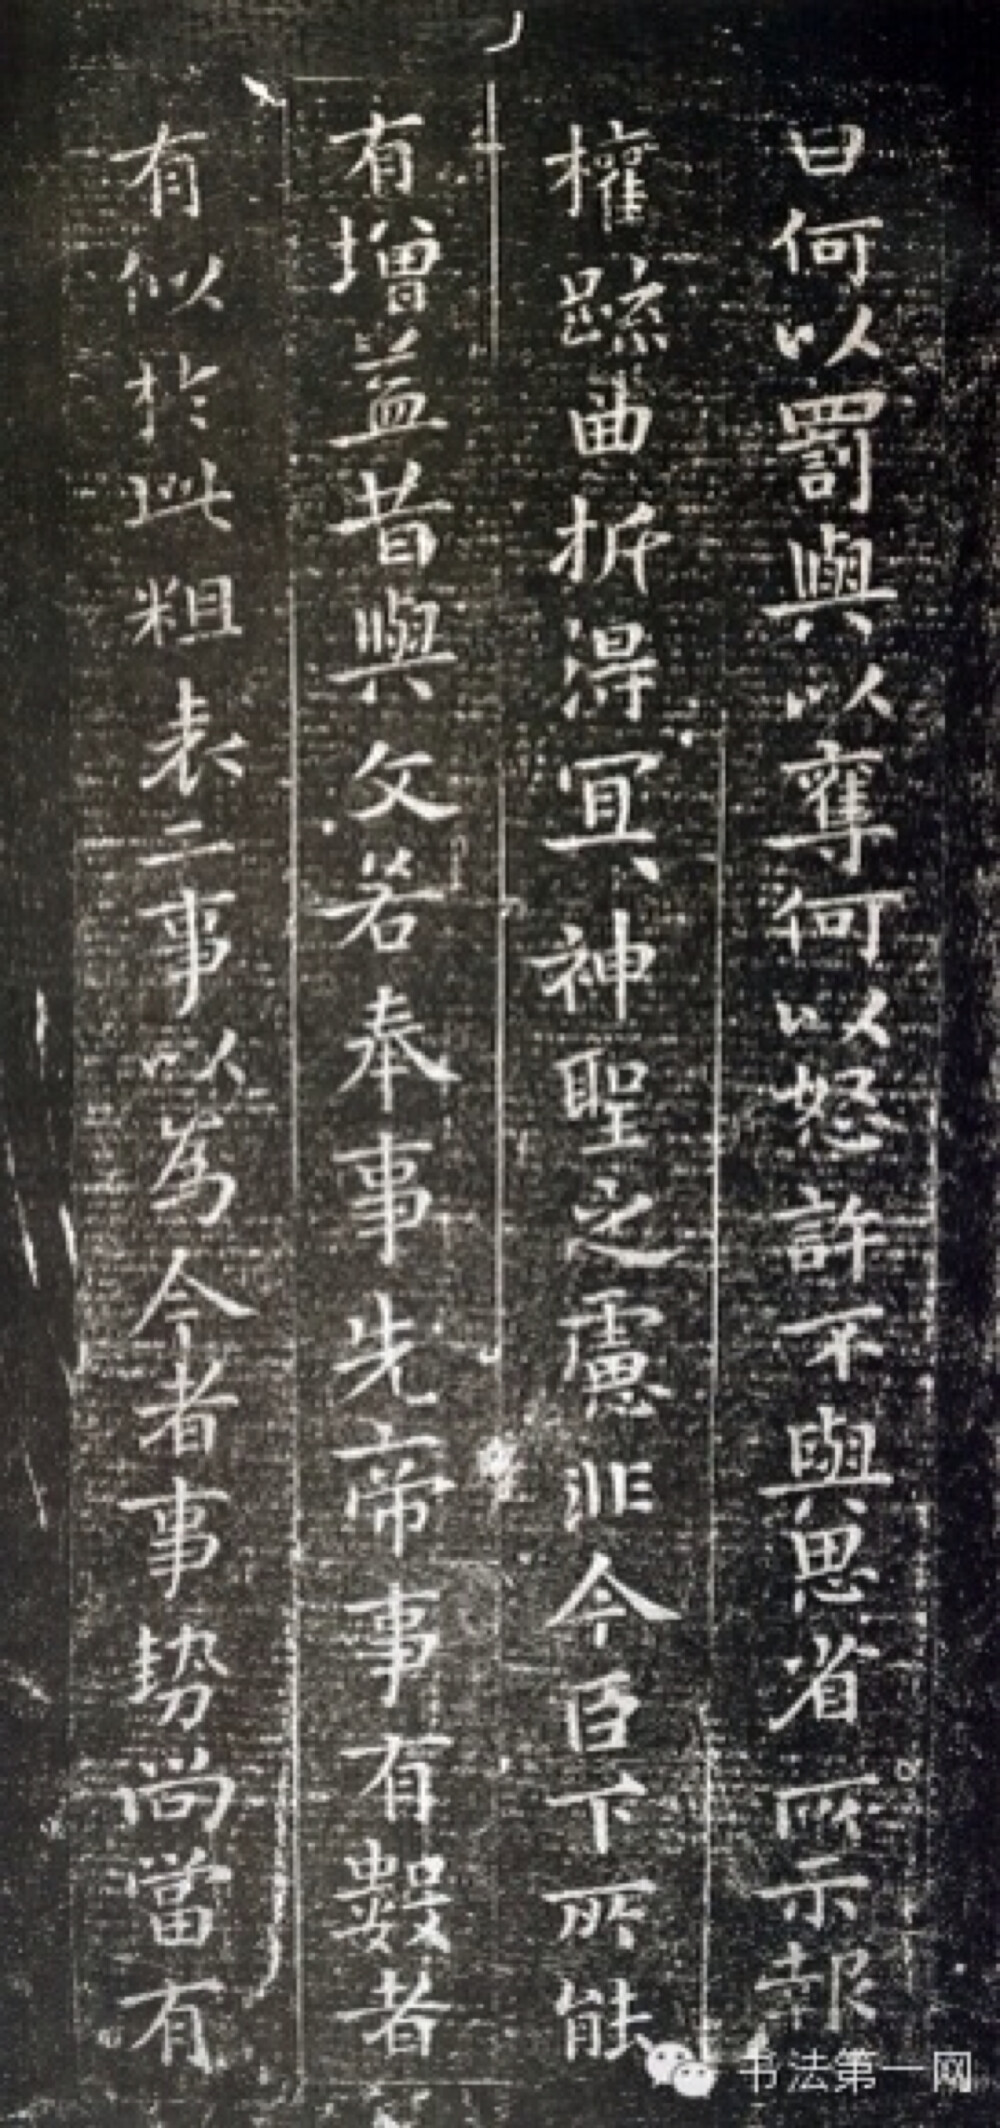 曰何以罰與以奪何以怒許不與思省所示報
權踈曲折得冝神聖之慮非今臣下所能
有增益昔與文若奉事先帝事有數者
有似於此粗表二事以為今者事勢尚當有
书法第一网